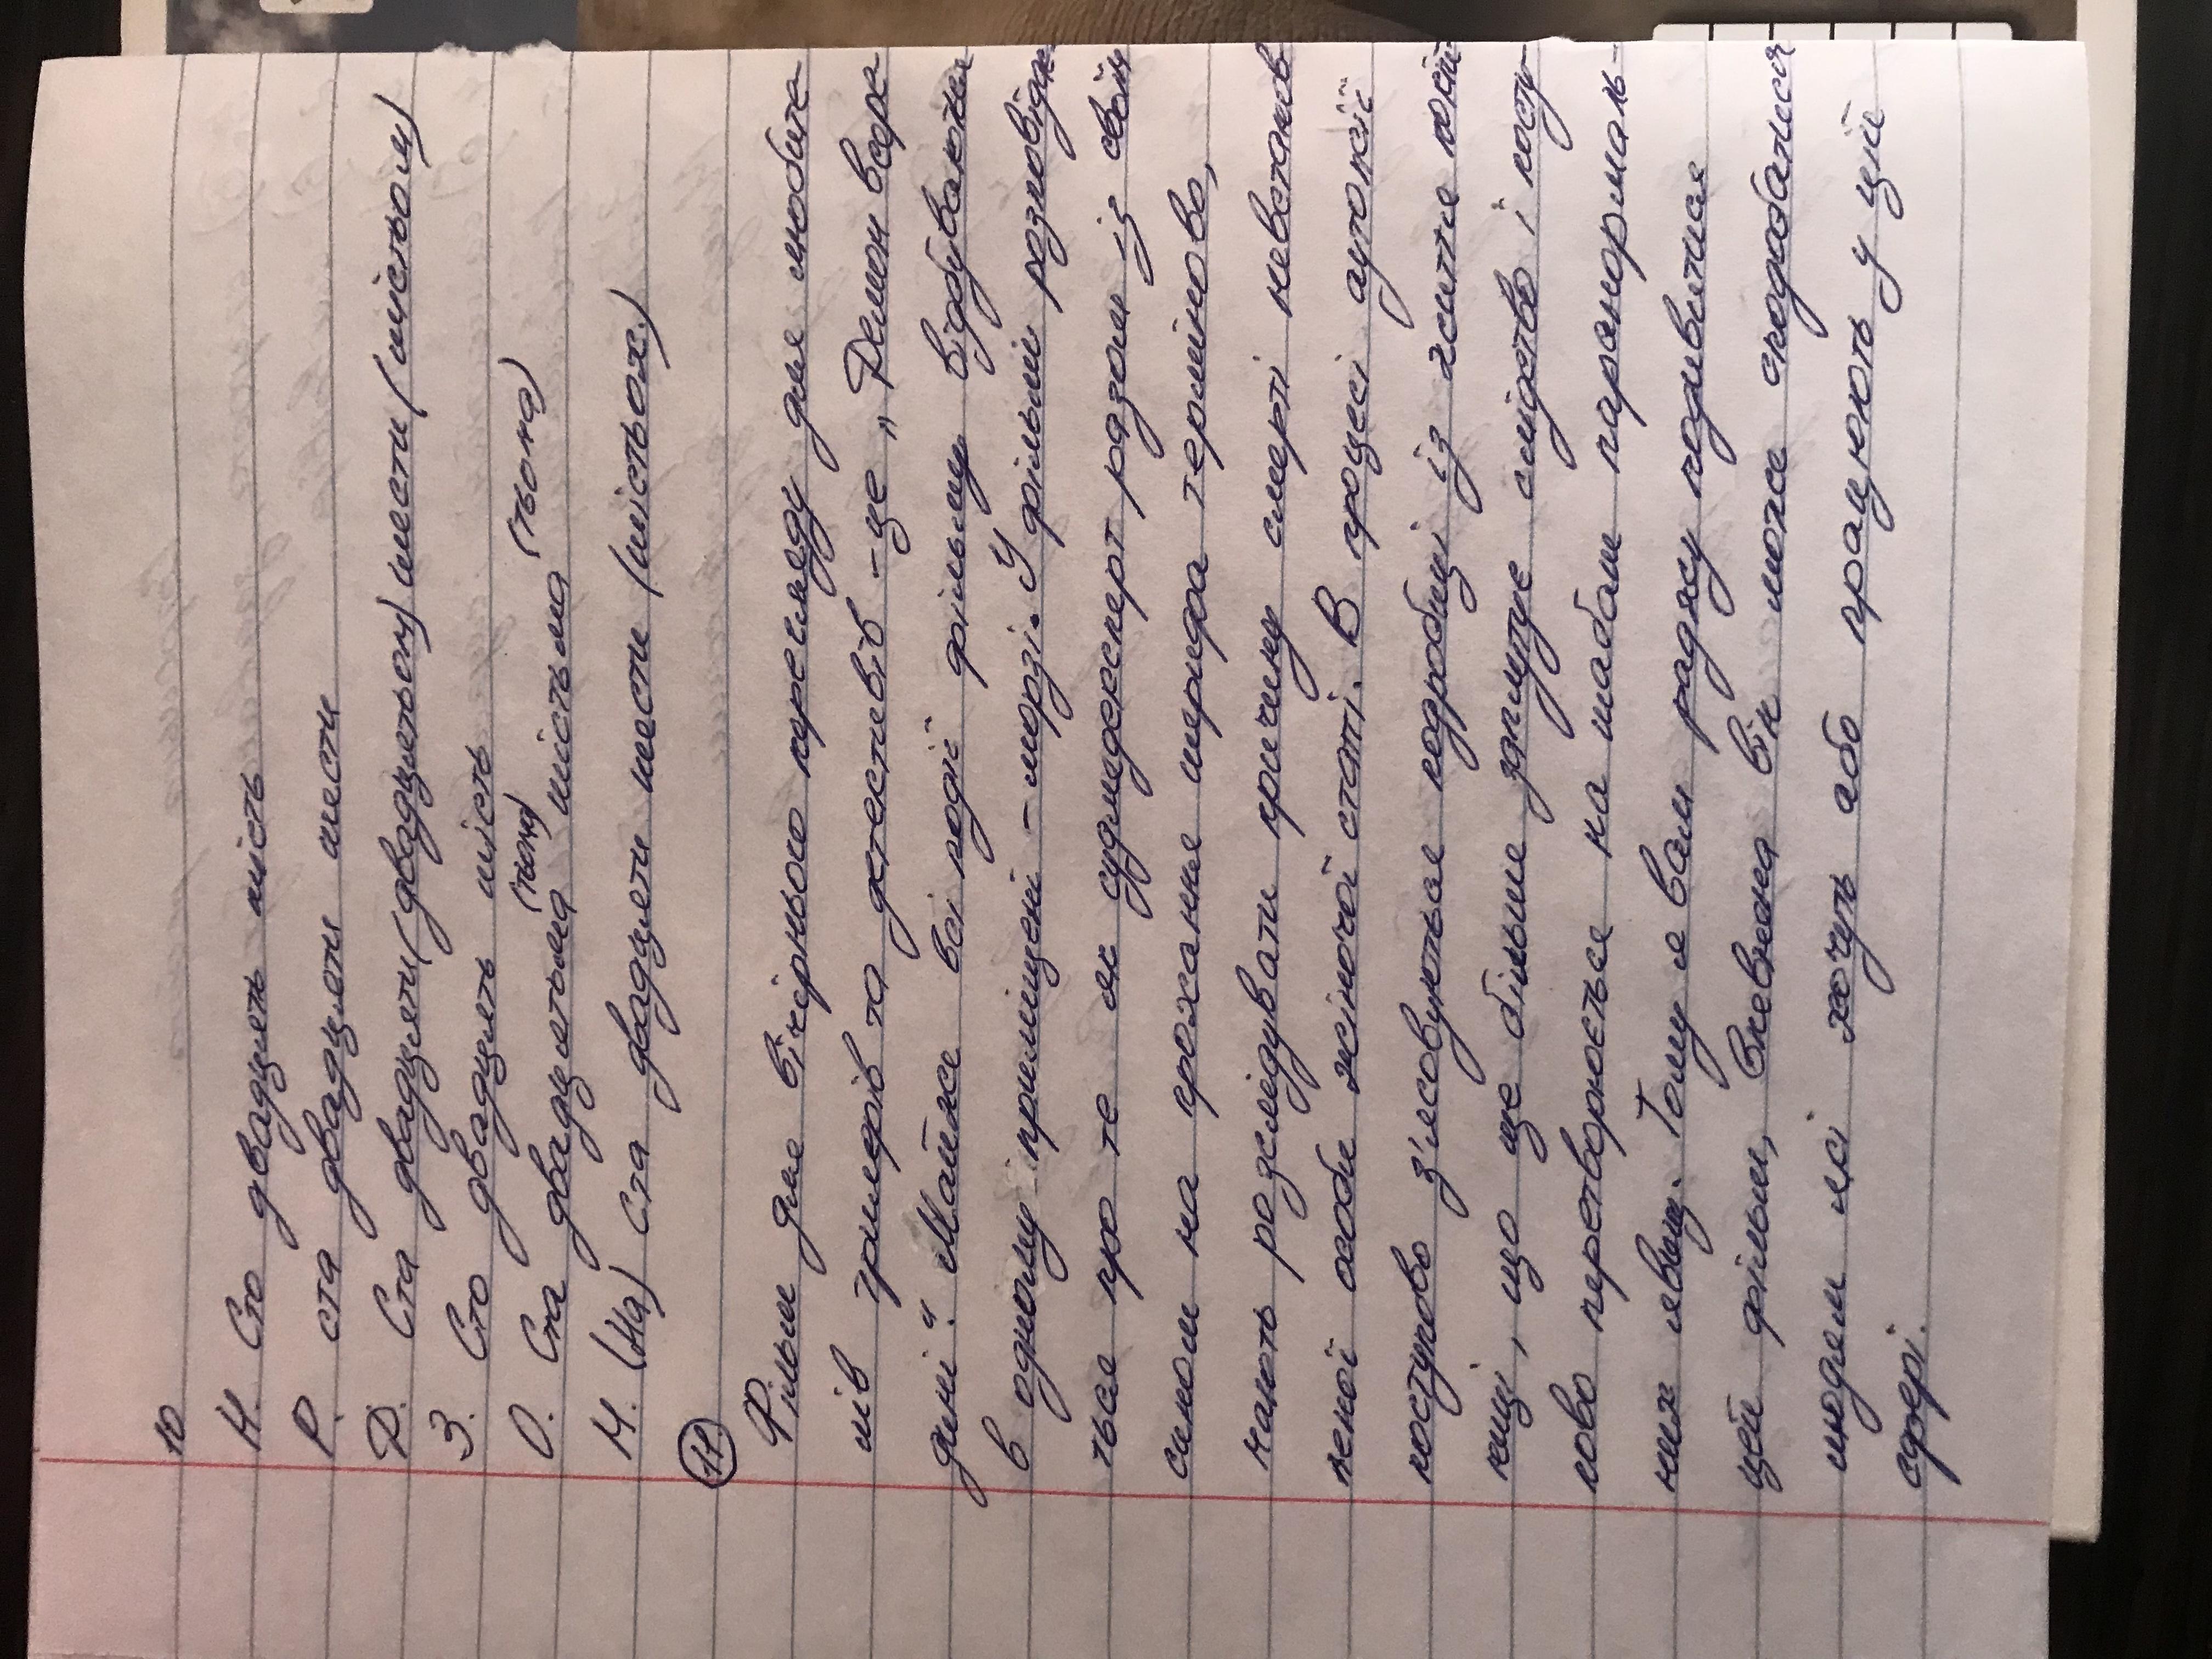 10
Н. Сто двадцять шість
Р. ста двадцяти шести
Д. Ста двадцяти (двадцятьом) шести (шістьом)
З. Сто двадцять шість
О. Ста двадцятьма (тьома) шістьма (тьома)
М. (на) ста двадцяти шести (шістьох)
11
Фільм для вічірнього перегляду для любите-
лів трилерів та детективів - це „Демон всере
дині". Майже всі події фільму відбуваються
в одному приміщені - морзі. У фільмі розповідає
ться про те як судмедексперт разом із своїм
сином на прохання шерифа терміново,
мають розслідувати причину смерті невстанов
леної особи жіночої статі. В процесі аутопсії
поступово з'ясовуються подробиці із життя покій
ниці, що ще більше заплутує слідство і посту-
пово перетворюється на шабаш паранормаль-
них явищ. Тому я вам раджу подивитися
цей фільм, впевнена він може сподобатися
людям які хочуть або працюють у цій
сфері.